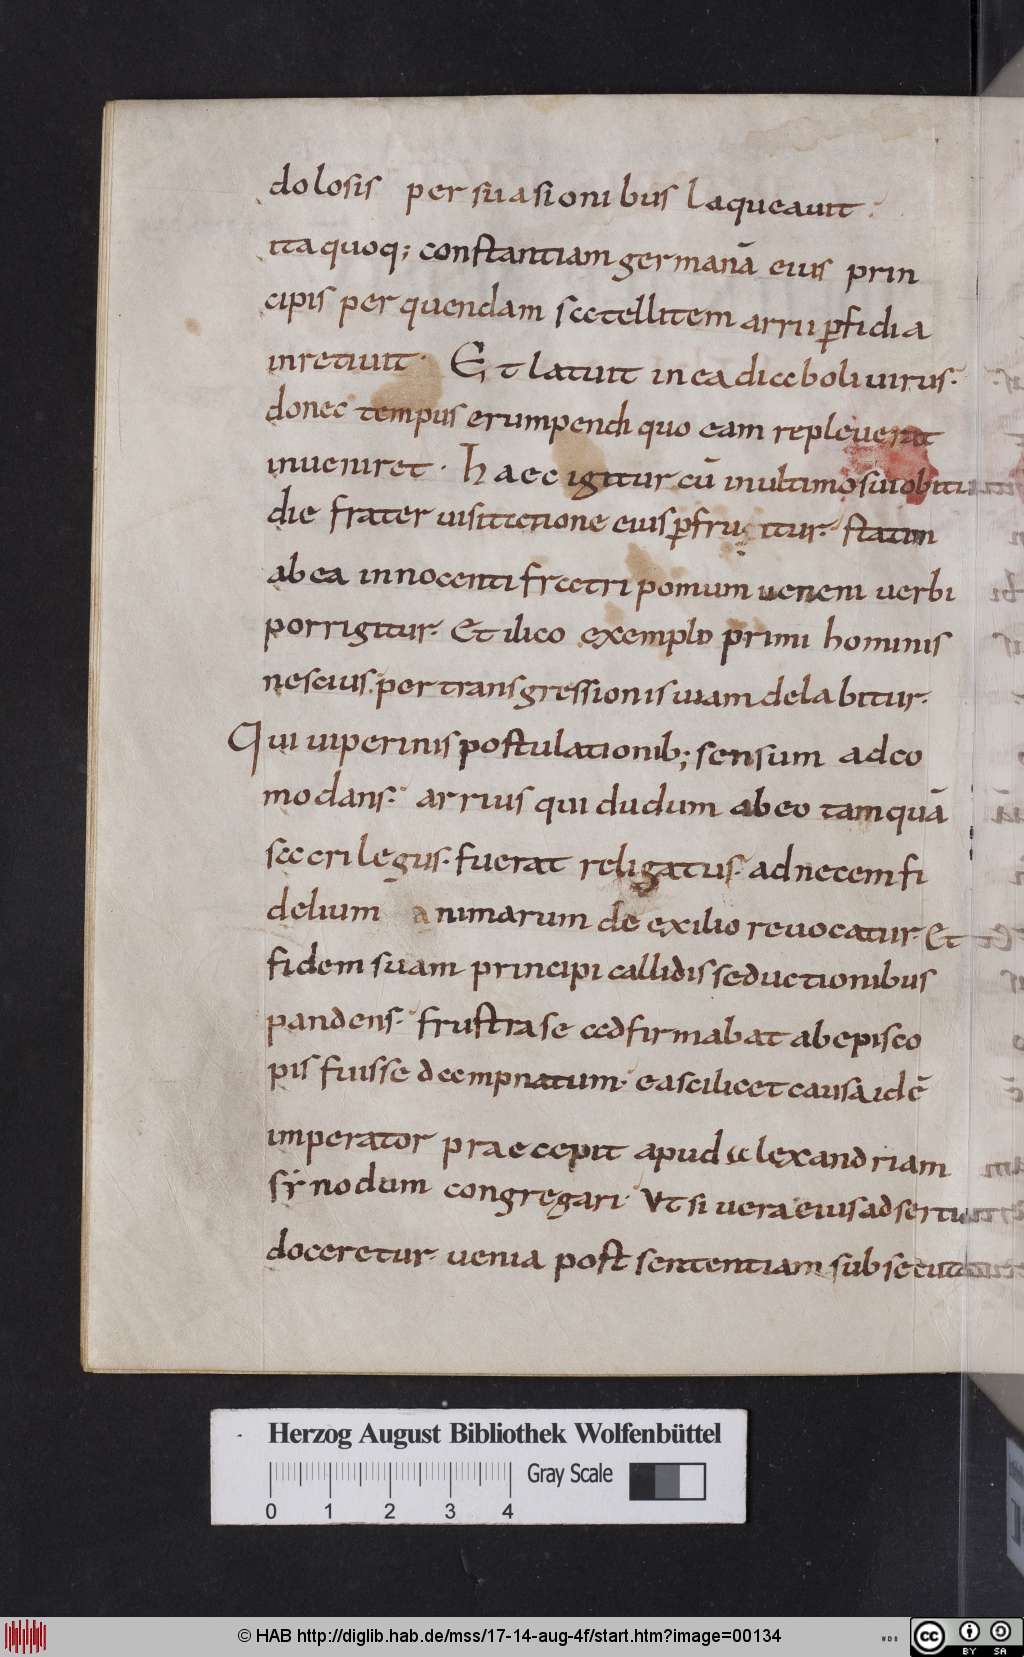 dolosis persuasionibus laqueauit.
ita quoq; constantiam germanā eius prin
cipis per quendam satellitem arrii ꝑfidia
inretiuit. Et latuit in ea diaboli uirus.
donec tempus erumpendi quo eam repleuerat
inueniret. Haec igitur cū in ultimo sui obitus
die frater uisitatione eius ꝑfrueretur. statim
ab ea innocenti fratri pomum ueneni uerbi
porrigitur. Et ilico exemplo primi hominis
nescius per transgressionis uiam delabitur.
Qui uiperinis postulationib; sensum adco
modans. arrius qui dudum ab eo tamquā
sacrilegus. fuerat religatus. ad necem fi
delium animarum de exilio reuocatur. Et
fidem suam principi callidis seductionibus
pandens. frustra se adfirmabat ab episco
pis fuisse dampnatum. ea scilicet causa idē
imperator praecepit apud alexandriam
synodum congregari. Ut si uera eius adsertio
doceretur. uenia post sententiam subsecuta
Herzog August Bibliothek Wolfenbüttel
0 1 2 3 4 Gray Scale
© HAB http://diglib.hab.de/mss/17-14-aug-4f/start.htm?image=00134
WDB
cc BY SA